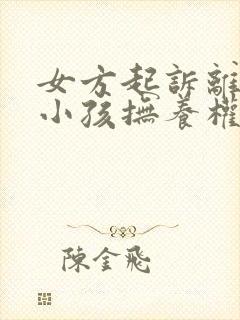 女方起訴離
小孩撫養權
陳金飛